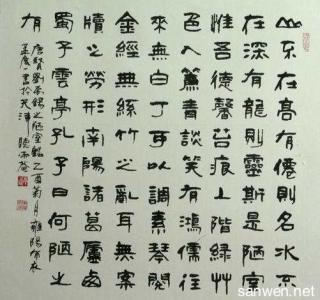 山不在高有僊則名水不
在深有龍則靈斯是陋室
惟吾德馨苔痕上階綠艸
色入簾青談笑有鴻儒往
來無白丁可以調素琴閱
金經無絲竹之亂耳無案
牘之勞形南陽諸葛廬西
蜀子雲亭孔子曰何陋之
有
唐賢劉禹錫之陋室銘乙酉菊月雍陽布衣
書於天津
sanwen.net